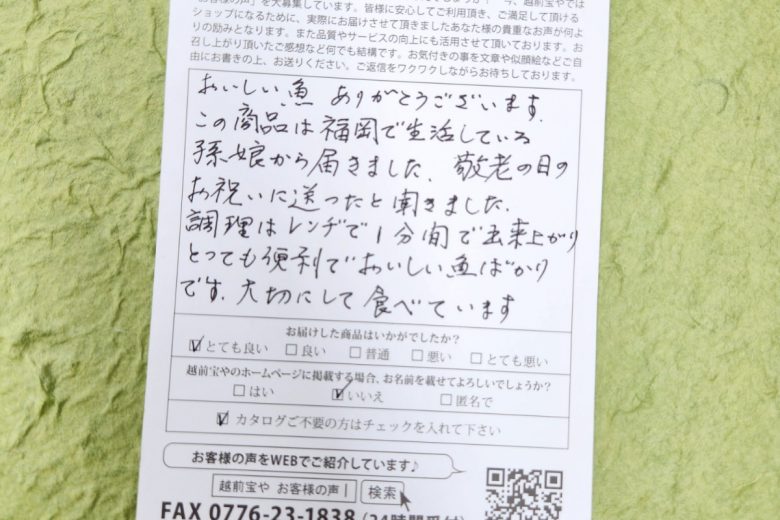 お客様の声」を大募集しています。皆様に安心してご利用頂き、ご満足して頂ける
ショップになるために、実際にお届けさせて頂きましたあなた様の貴重なお声が何よ
りの励みとなります。また品質やサービスの向上にも活用させて頂いております。お
召し上がり頂いたご感想など何でも結構です。お気付きの事を文章や似顔絵などご自
由にお書きの上、お送りください。ご返信をワクワクしながらお待ちしております。
おいしい魚 ありがとうございます.
この商品は福岡で生活している
孫娘から届きました. 敬老の日の
お祝いに送ったと聞きました.
調理はレンヂで1分間で出来上がり
とっても便利でおいしい魚ばかり
です. 大切にして食べています
お届けした商品はいかがでしたか?
とても良い 良い 普通 悪い とても悪い
越前宝やのホームページに掲載する場合、お名前を載せてよろしいでしょうか?
はい いいえ 匿名で
カタログご不要の方はチェックを入れて下さい
お客様の声をWEBでご紹介しています♪
越前宝や お客様の声 検索
FAX 0776-23-1838 (24時間受付)